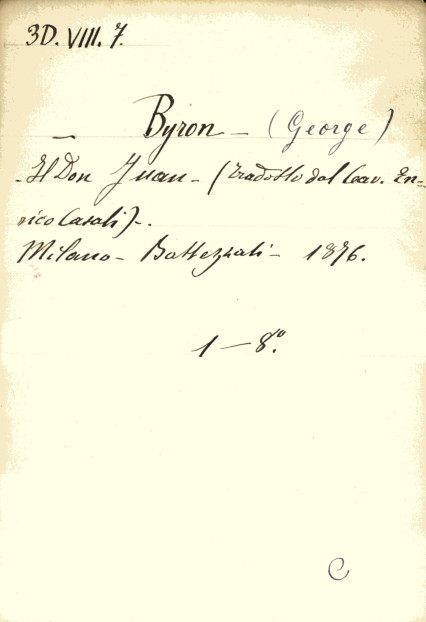 3D. VIII. 7.
Byron - (George)
- Il Don Juan - (tradotto dal Cav. En-
rico Casali) -.
Milano - Battezzati - 1876.
1 - 8º.
C